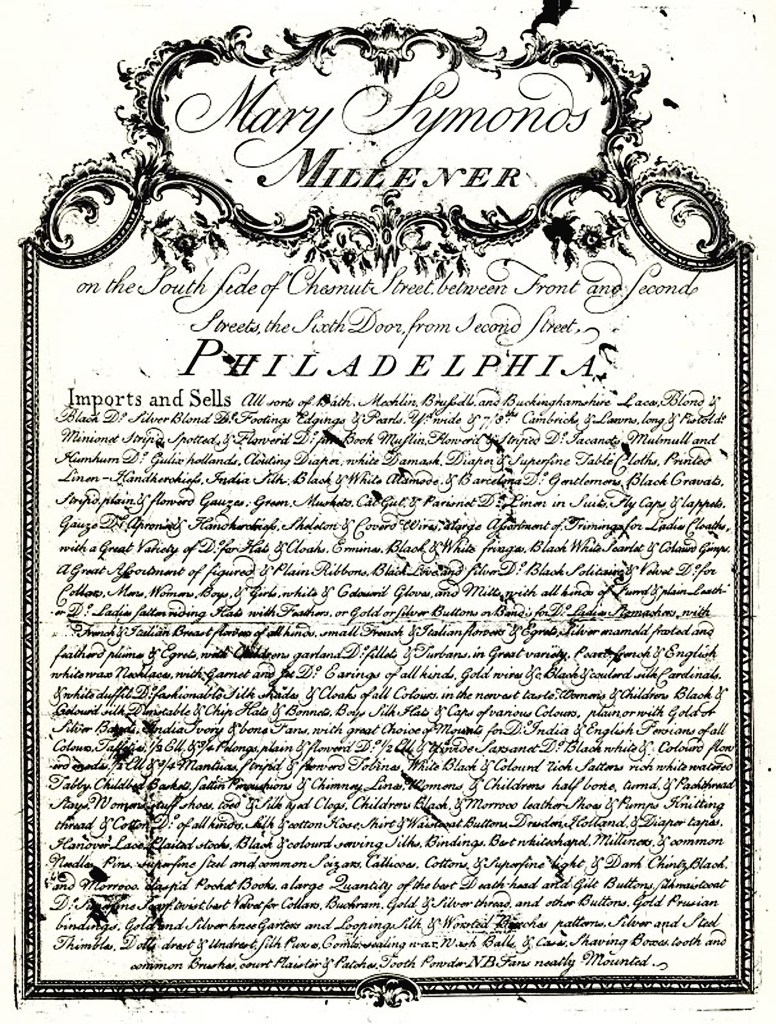 Mary Symonds
MILLENER
on the South side of Chesnut Street, between Front and Second
Streets, the Sixth Door, from Second Street,
PHILADELPHIA,
Imports and Sells All sorts of Bath, Mechlin, Brussels, and Buckinghamshire Laces, Blond &
Black Do. Silver Blond Do. Footings Edgings & Pearls. Yd. wide & 7/8ths Cambricks, & Lawns, long & Pistol do.
Minionet Strip'd, Spotted, & Flower'd Do. fine Book Muslin, Flower'd & Strip'd Do. Jaconets, Mulmull and
Humhum Do. Gulix hollands, Clouting Diaper, white Damask, Diaper & Superfine Table Cloths, Printed
Linen-Handkerchiefs, India Silk, Black & White Alamode & Barcelona Do. Gentlemens, Black Cravats,
Strip'd, plain & flower'd Gauzes, Green, Musketo, Cat Gut, & Parisnet Do. Linen in Suits, Fly Caps & lappets,
Gauze Do. Aprons & Handkerchiefs, Skeleton & Cover'd Wires, a large Assortment of Trimings for Ladies Cloaths,
with a Great Variety of Do. for Hats & Cloaks, Ermines, Black & White fringes, Black White Scarlet & Colour'd Gimps,
A Great Assortment of figured & Plain Ribbons, Black Love, and Silver Do. Black Solitaire & Velvet Do. for
Collars, Mens, Womens, Boys, & Girls, white & Colour'd Gloves, and Mitts, with all kinds of Furr'd & plain Leath-
er Do. Ladies satten riding Hats with Feathers, or Gold or Silver Buttons or Bands for Do. Ladies Stomachers, with
French & Italian Breast flowers of all kinds, small French & Italian flowers & Egrets, Silver enameld frosted and
featherd plume & Egrets, with Childrens garland Do. fillets & Turbans, in Great variety. Pearl, french & English
white wax Necklaces, with Garnet and Jet Do. Earings of all kind, Gold wires &c. Black & coulard silk Cardinals,
& white duffill Do. fashionable Silk Shades & Cloaks of all Colours, in the newest taste, Womens & Childrens Black &
Colourd silk Dunstable & Chip Hats & Bonnets, Boys Silk Hats & Caps of various Colours, plain, or with Gold or
Silver Bands, India Ivory & bone Fans, with great Choice of Mounts for Do. India & English Persians of all
Colours, Taffeties, 1/2 Ell, & 3/4 Pelongs, plain & flower'd Do. 1/2 Ell & Sarsanet Do. Black white & Colour'd flow
er'd modes, 1/2 Ell & 3/4 Mantuas, Strip'd & flower'd Tobines, White Black & Colourd rich Sattens rich white watered
Tabby Childbed Baskets, Sattin Pincushions & Chimney Lines, Womens & Childrens half bone, turnd, & Packthread
Stays, Womens stuff shoes, toed & Silk Clogs, Childrens Black, & Morroco leather Shoes & Pumps Knitting
thread & Cotton Do. of all kinds, Silk & cotton Hose, Shirt & Waistcoat Buttons, Dresden, Holland, & Diaper tapes,
Hanover Lace, Plaited stocks, Black & colourd serving Silks, Bindings, Best whitechapel, Milliners, & common
Needles Pins, Superfine Steel and common Scizars, Callicoes, Cottons & Superfine light, & Dark Chintz, Black,
and Morroco, claspid Pocket Books, a large Quantity of the best Death head and Gilt Buttons, silk waistcoat
Do. Superfine twist, best Velvet for Collars, Buckram, Gold & Silver thread, and other Buttons, Gold Prusian
bindings, Gold and Silver knee Garters and Looping Silk & Worsted Breeches patterns, Silver and Steel
Thimbles, Dolls drest & Undrest, Silk Purses, Combs, sealing wax, Wash Balls, & Cases, Shaving Boxes, tooth and
common Brushes, court Plaister & Patches, Tooth Powder. NB. Fans neatly Mounted.